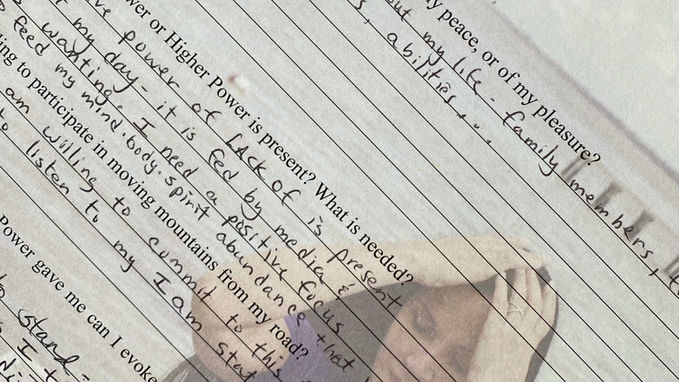 peace, or of my pleasure?
my life - family members,
abilities...
or Higher Power is present? What is needed?
power of LACK of is present
my day - it is fed by media &
wanting. I need a positive focus
feed my mind-body-spirit abundance that
to participate in moving mountains from my road?
am willing to commit to this
to listen to my I am
Power gave me can I evoke
stand-
I